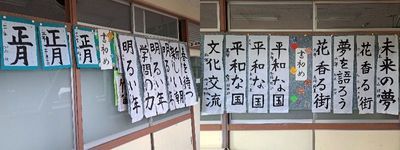 正月
正月
正月
書初め
明るい年
学問の力
明るい年
を待つ
文化交流
平和な国
平和な国
平和な国
書初め
花香る街
夢を語ろう
花香る街
未来の夢